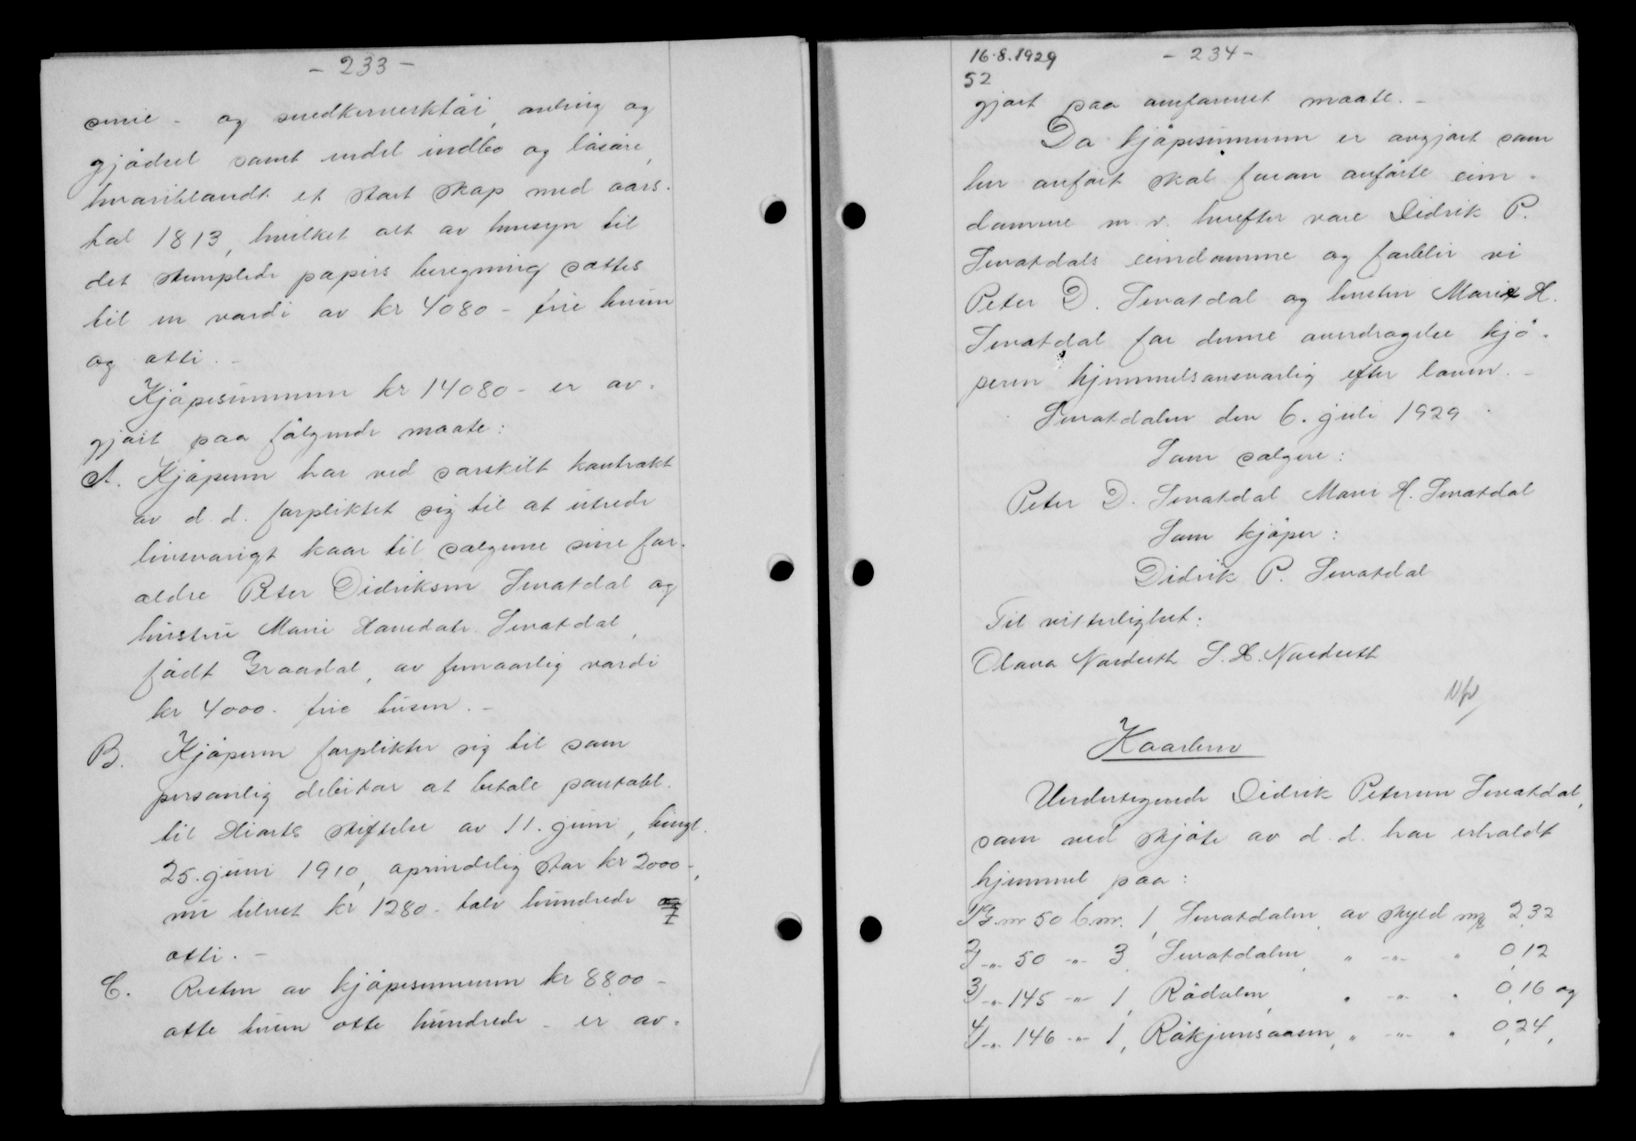 - 233 -
smie - og snedkerverktöi, avling og
gjödsel samt endel indbo og lösöre,
hvoriblandt et stort skap med aars-
tal 1813, hvilket alt av hensyn til
det stemplede papirs beregning sættes
til en værdi av kr 4080 - fire tusen
og otti. -
Kjöpesummen kr 14080 - er av-
gjort paa fölgende maate:
A. Kjöperen har ved særskilt kontrakt
av d. d. forpliktet sig til at utrede
livsvarigt kaar til sælgerne sine for-
ældre Peter Didriksen Sevatdal og
hustru Mari Hansdatr. Sevatdal,
födt Graadal, av femaarlig værdi
kr 4000 - fire tusen. -
B. Kjöperen forplikter sig til som
personlig debitor at betale pantobl.
til Hiorts stiftelse av 11. juni, tingl.
25. juni 1910, oprindelig stor kr 2000 -,
nu utgjør kr 1280 - tolv hundrede og
otti. -
C. Resten av kjöpesummen kr 8800 -
otte tusen otte hundrede - er av-
16.8.1929
- 234 -
52
gjort paa omforenet maate. -
Da kjöpesummen er avgjort som
her anfört skal foran anförte eien-
domme m. v. herefter være Didrik P.
Sevatdals eiendomme og forblir vi
Peter D. Sevatdal og hustru Mari H.
Sevatdal for denne overdragelse kjö-
peren hjemmelsansvarlig efter loven. -
Sevatdalen den 6. juli 1929.
Som sælgere:
Peter D. Sevatdal Mari H. Sevatdal
Som kjöper:
Didrik P. Sevatdal
Til vitterlighet:
Olava Nordseth S. H. Nordseth
Kaarbrev
Undertegnede Didrik Petersen Sevatdal,
som ved skjöte av d. d. har erholdt
hjemmel paa:
1/ G.nr 50 b.nr. 1, Sevatdalen, av skyld mk 2,32
2/ -"- 50 -"- 3, Sevatdalen, " -"- " 0,12
3/ -"- 145 -"- 1, Rödalen, " -"- " 0,16 og
4/ -"- 146 -"- 1, Rökjemsaasen, " -"- " 0,24,